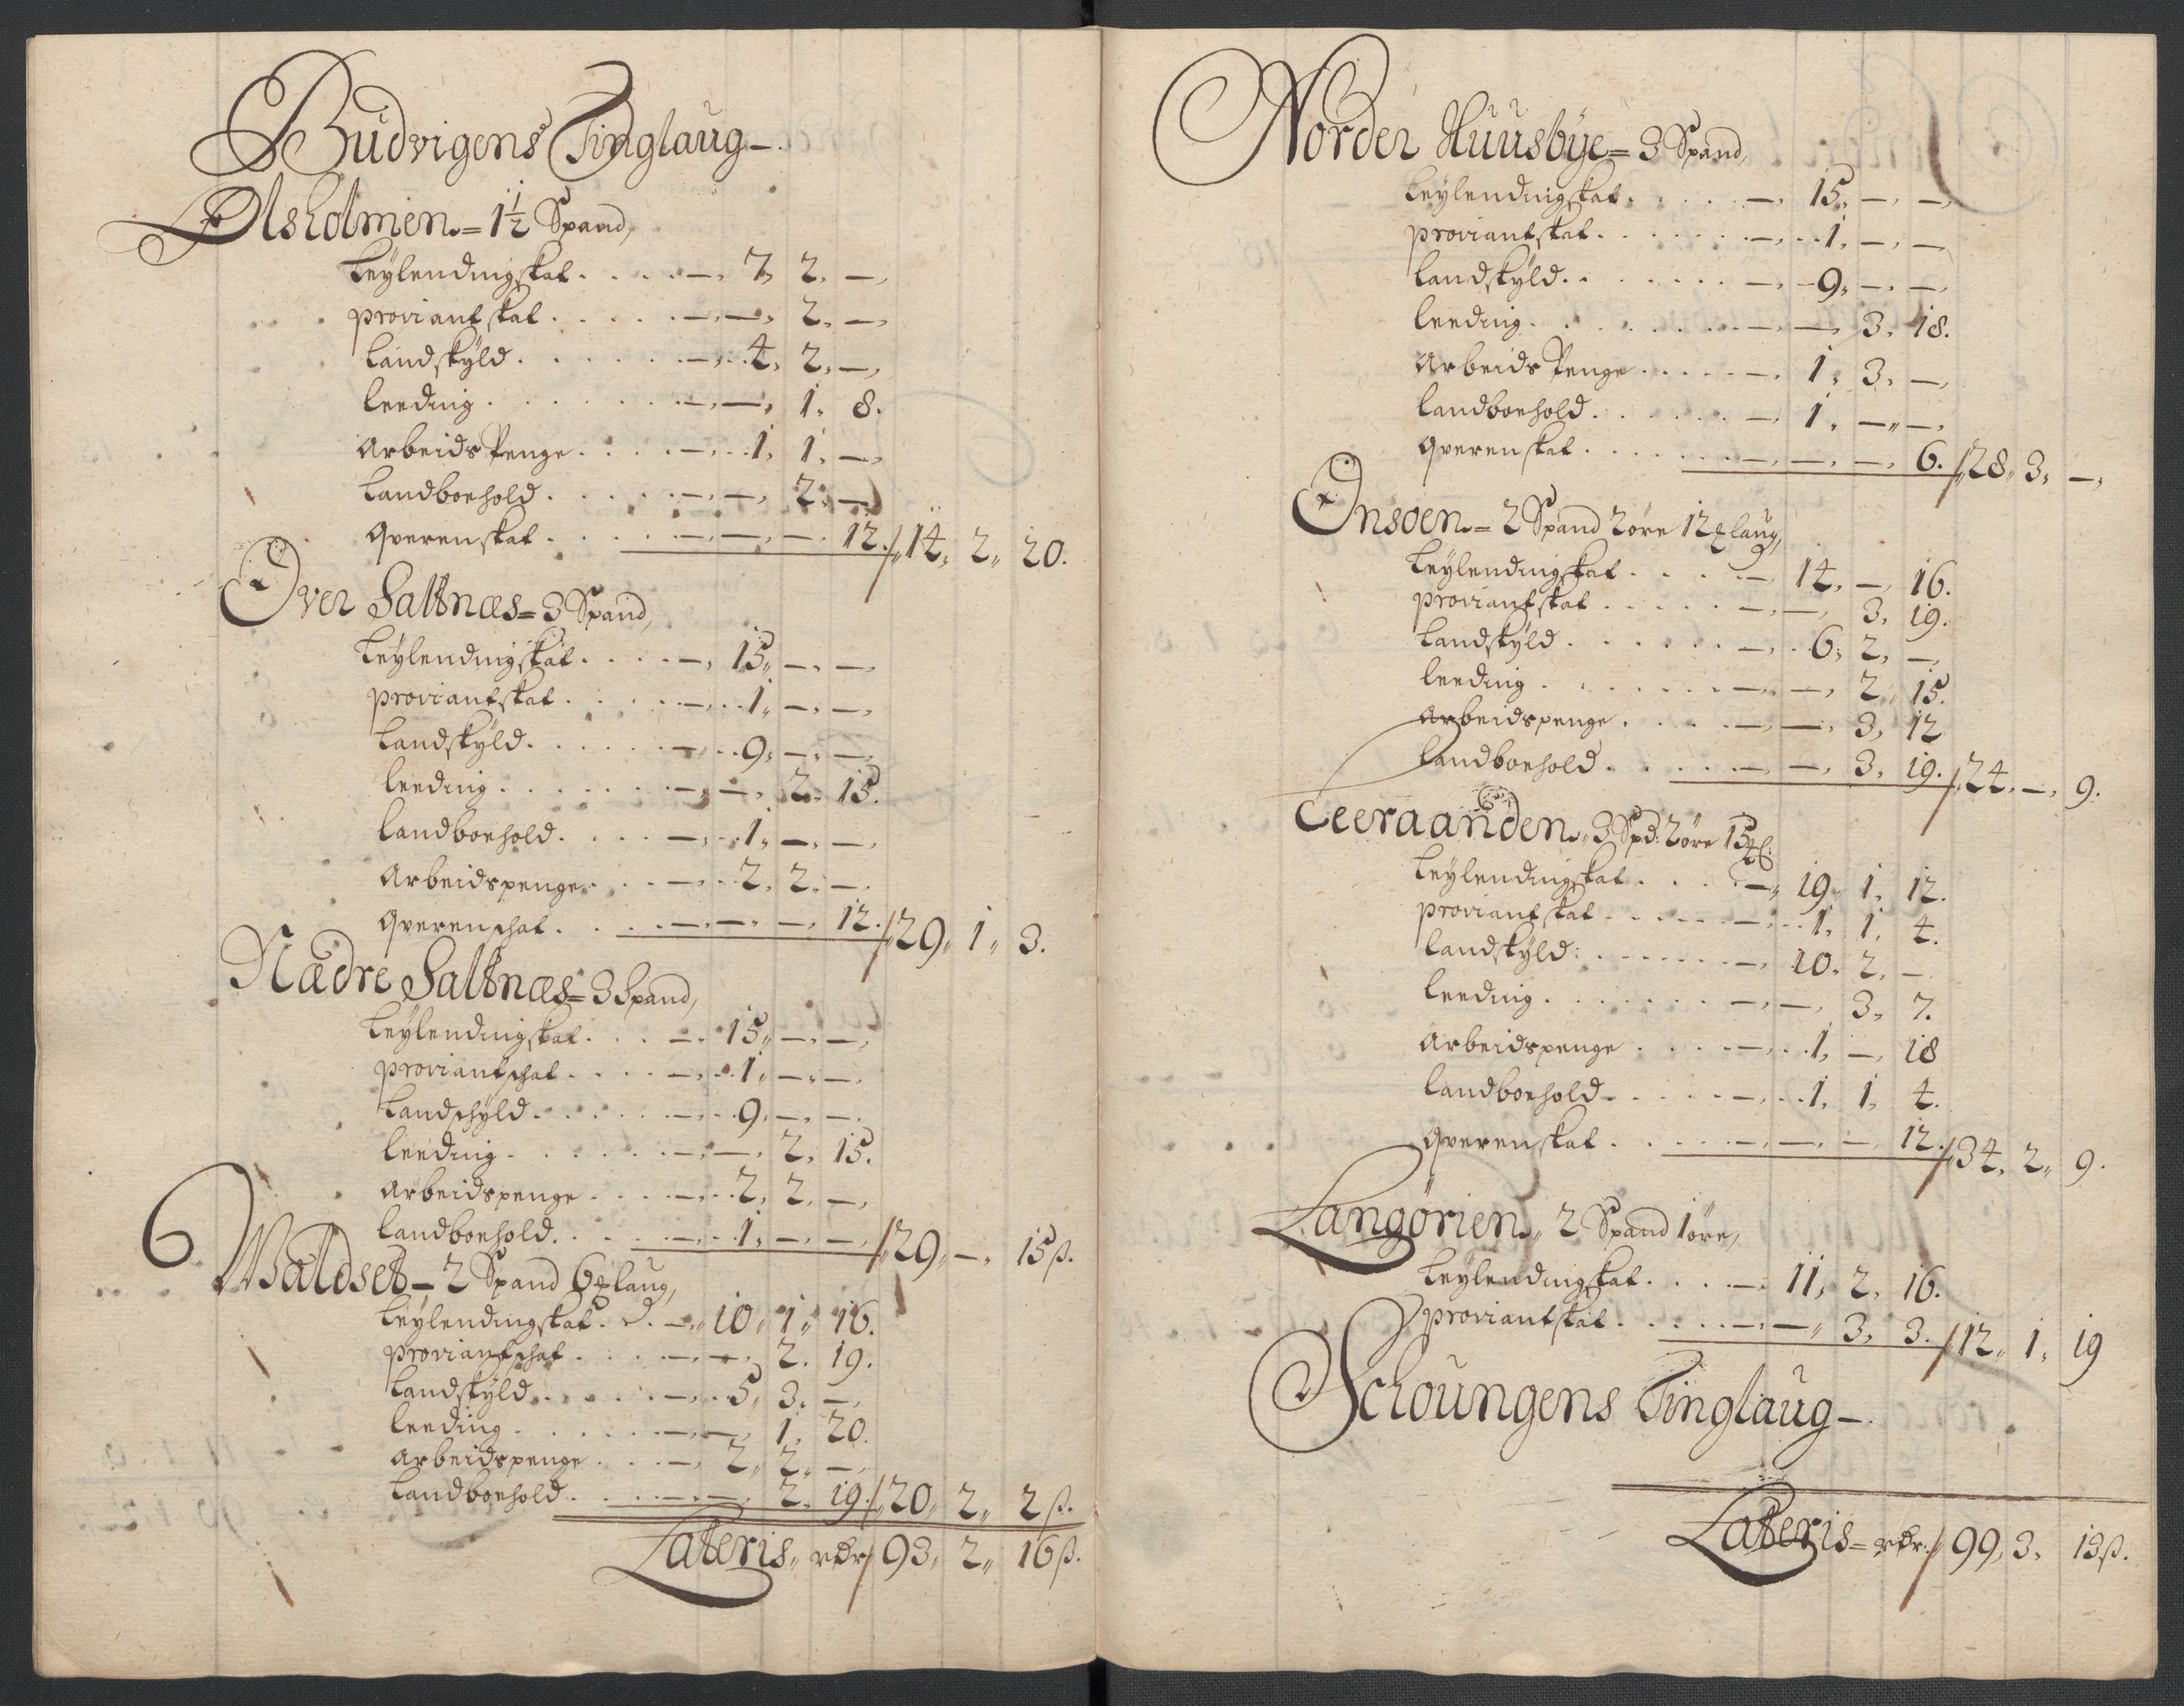 Budvigens Tinglaug
Olsholmen = 1½ Spand,
Leylendingskat . . . . — 7, 2, —
proviantskat . . . . — — 2, —
Landskyld . . . . — 4, 2, —
leeding . . . . — — 1, 8.
Arbeids Penge . . . . — 1, 1, —
Landboehold . . . . — — 2, —
qverenskat . . . . — — — 12. // 14, 2, 20.
Over Saltnæs = 3 Spand,
Leylendingskat . . . . — 15, — —
proviantskat . . . . — 1, — —
Landskyld . . . . — 9, — —
leeding . . . . — — 2, 15.
Landboehold . . . . — 1, — —
Arbeidspenge . . . . — 2, 2, —
qverenschat . . . . — — — 12. // 29, 1, 3.
Nædre Saltnæs = 3 Spand,
Leylendingskat . . . — 15, — —
proviantschat . . . . — 1, — —
Landschyld . . . . — 9, — —
leeding . . . . — — 2, 15.
Arbeidspenge . . . . — 2, 2, —
Landboehold . . . . — 1, — — // 29, — 15 ß.
Waldset — 2 Spand 6 laug,
Leylendingskat . . . — 10, 1, 16.
proviantschat . . . . — — 2. 19.
Landskyld . . . . — 5, 3, —
leeding . . . . — — 1, 20.
Arbeidspenge . . . — 2, 2, —
Landboehold . . . . — — 2, 19. // 20, 2, 2 ß.
Lateris, rdr / 93, 2, 16 ß.
Norder Huusbye = 3 Spand,
Leylendingskat . . . . — 15, — —
proviantskat . . . . — 1, — —
Landskyld . . . . — 9, — —
leeding . . . . — — 3, 18.
Arbeids Penge . . . . — 1, 3, —
Landboehold . . . . — 1, — —
qverenskat . . . . — — — 6. // 28, 3, —
Onsøen = 2 Spand 2 øre 12 laug,
Leylendingskat . . . . — 14, — 16.
proviantskat . . . . — — 3, 19.
Landskyld . . . . — 6, 2, —
leeding . . . . — — 2, 15.
Arbeidspenge . . . . — — 3, 12
Landboehold . . . . — — 3, 19. // 24, — 9.
Leeraanden, 3 Spd: 2 øre 15
Leylendingskat . . . — 19, 1, 12.
proviantskat . . . . — 1, 1, 4.
Landskyld: . . . . — 10. 2, —
leeding . . . . — — 3, 7.
Arbeidspenge . . . . — 1, — 18
Landboehold . . . . — 1, 1, 4.
qverenskat . . . . — — — 12. // 34, 2, 9.
Langørien, 2 Spand 1 øre,
Leylendingskat . . . . — 11, 2, 16.
proviantskat . . . . — — 3, 3. // 12, 1, 19
Schoungens Tinglaug —
Lateris = rdr. / 99, 3, 13 ß.